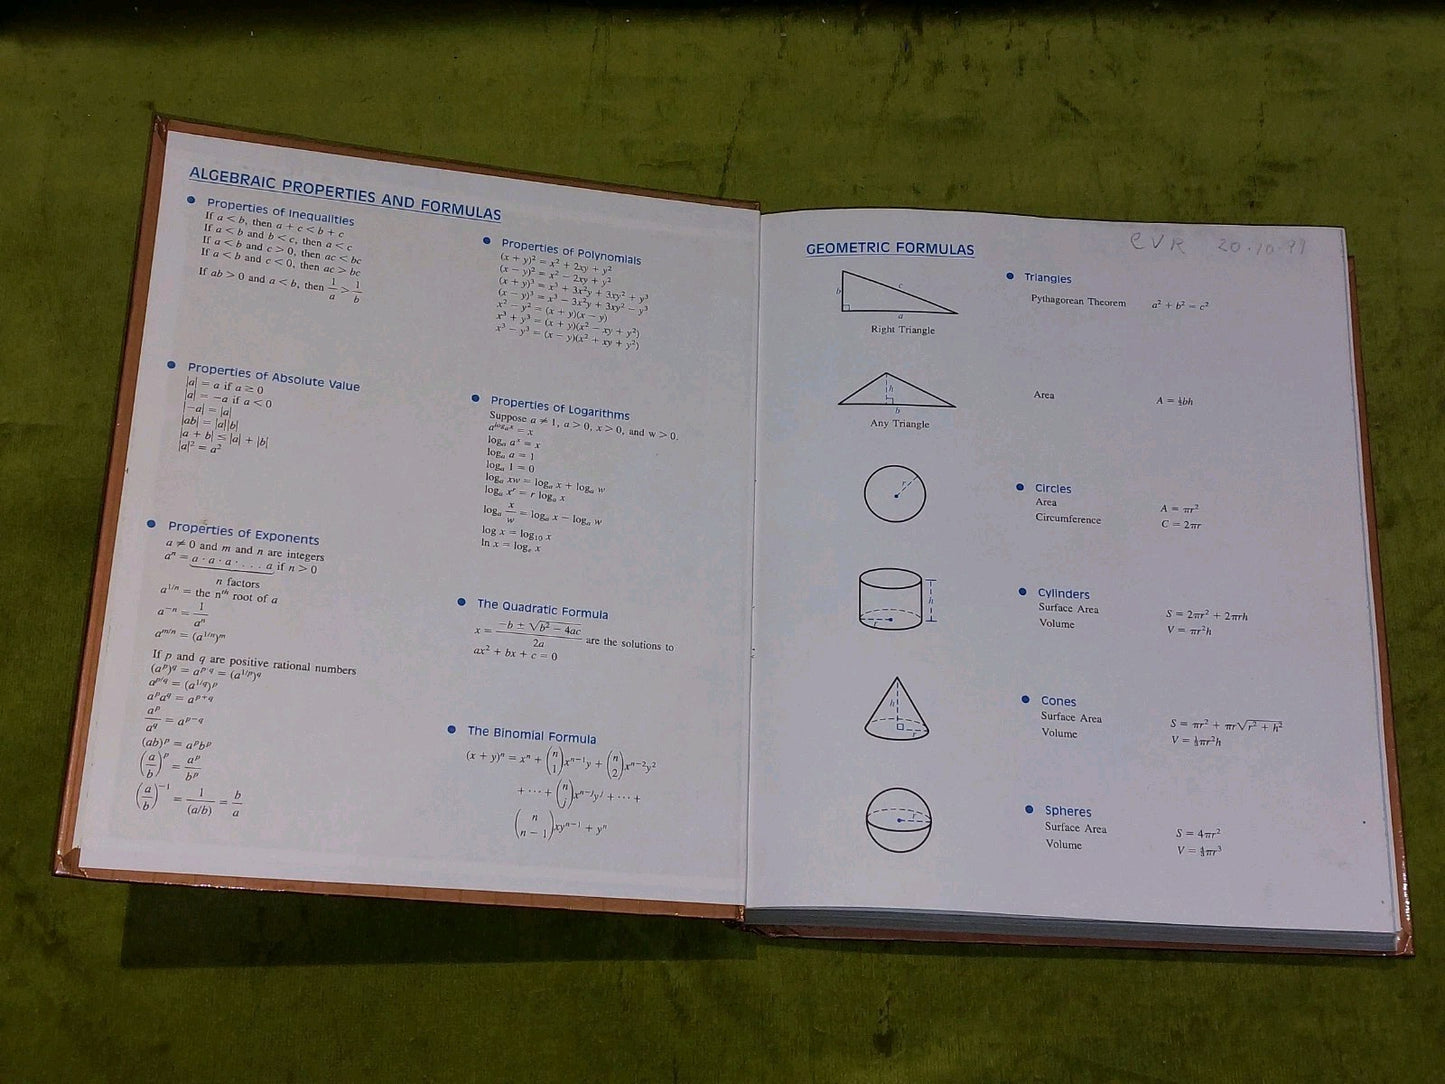 ALGEBRAIC PROPERTIES AND FORMULAS
• Properties of Inequalities
If a < b, then a + c < b + c
If a < b and b < c, then a < c
If a < b and c > 0, then ac < bc
If a < b and c < 0, then ac > bc
If ab > 0 and a < b, then 1/a > 1/b
• Properties of Absolute Value
|a| = a if a ≥ 0
|a| = −a if a < 0
|−a| = |a|
|ab| = |a||b|
|a + b| ≤ |a| + |b|
|a|² = a²
• Properties of Exponents
a ≠ 0 and m and n are integers
aⁿ = a · a · a · . . . a if n > 0
n factors
a^(1/n) = the nᵗʰ root of a
a⁻ⁿ = 1/aⁿ
a^(m/n) = (a^(1/n))^m
If p and q are positive rational numbers
(a^p)^q = a^(p·q) = (a^(1/p))^q
a^(p/q) = (a^(1/q))^p
a^p a^q = a^(p+q)
a^p/a^q = a^(p−q)
(ab)^p = a^p b^p
(a/b)^p = a^p/b^p
(a/b)⁻¹ = 1/(a/b) = b/a
• Properties of Polynomials
(x + y)² = x² + 2xy + y²
(x − y)² = x² − 2xy + y²
(x + y)³ = x³ + 3x²y + 3xy² + y³
(x − y)³ = x³ − 3x²y + 3xy² − y³
x² − y² = (x + y)(x − y)
x³ + y³ = (x + y)(x² − xy + y²)
x³ − y³ = (x − y)(x² + xy + y²)
• Properties of Logarithms
Suppose a ≠ 1, a > 0, x > 0, and w > 0.
a^(logₐ x) = x
logₐ a^x = x
logₐ a = 1
logₐ 1 = 0
logₐ xw = logₐ x + logₐ w
logₐ x^r = r logₐ x
logₐ x/w = logₐ x − logₐ w
log x = log₁₀ x
ln x = logₑ x
• The Quadratic Formula
x = (−b ± √(b² − 4ac))/2a are the solutions to
ax² + bx + c = 0
• The Binomial Formula
(x + y)ⁿ = xⁿ + (n 1)xⁿ⁻¹y + (n 2)xⁿ⁻²y²
+ · · · + (n j)xⁿ⁻ʲyʲ + · · · +
(n n − 1)xyⁿ⁻¹ + yⁿ
GEOMETRIC FORMULAS
CVR 20.10.91
b c
a
Right Triangle
• Triangles
Pythagorean Theorem a² + b² = c²
h
b
Any Triangle
Area A = ½bh
r
• Circles
Area A = πr²
Circumference C = 2πr
h
r
• Cylinders
Surface Area S = 2πr² + 2πrh
Volume V = πr²h
h
r
• Cones
Surface Area S = πr² + πr√(r² + h²)
Volume V = ⅓πr²h
r
• Spheres
Surface Area S = 4πr²
Volume V = 4/3πr³